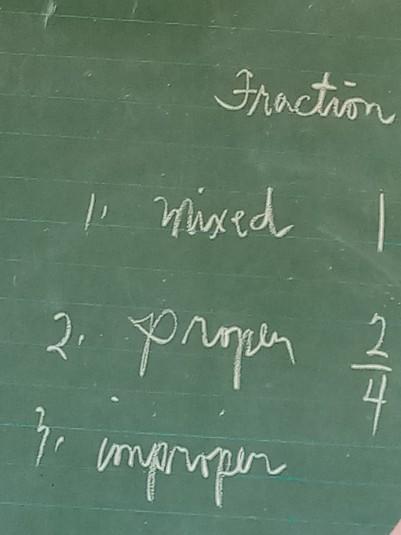 Fraction
1. mixed 1
2. proper 2/4
3. improper